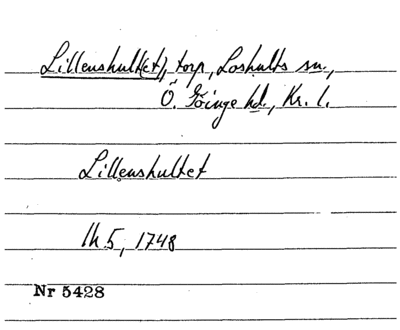 Lillenshult(et), torp, Loshults sn.,
Ö. Göinge hd., Kr. l.
Lillenshultet
lk 5, 1748
Nr 5428